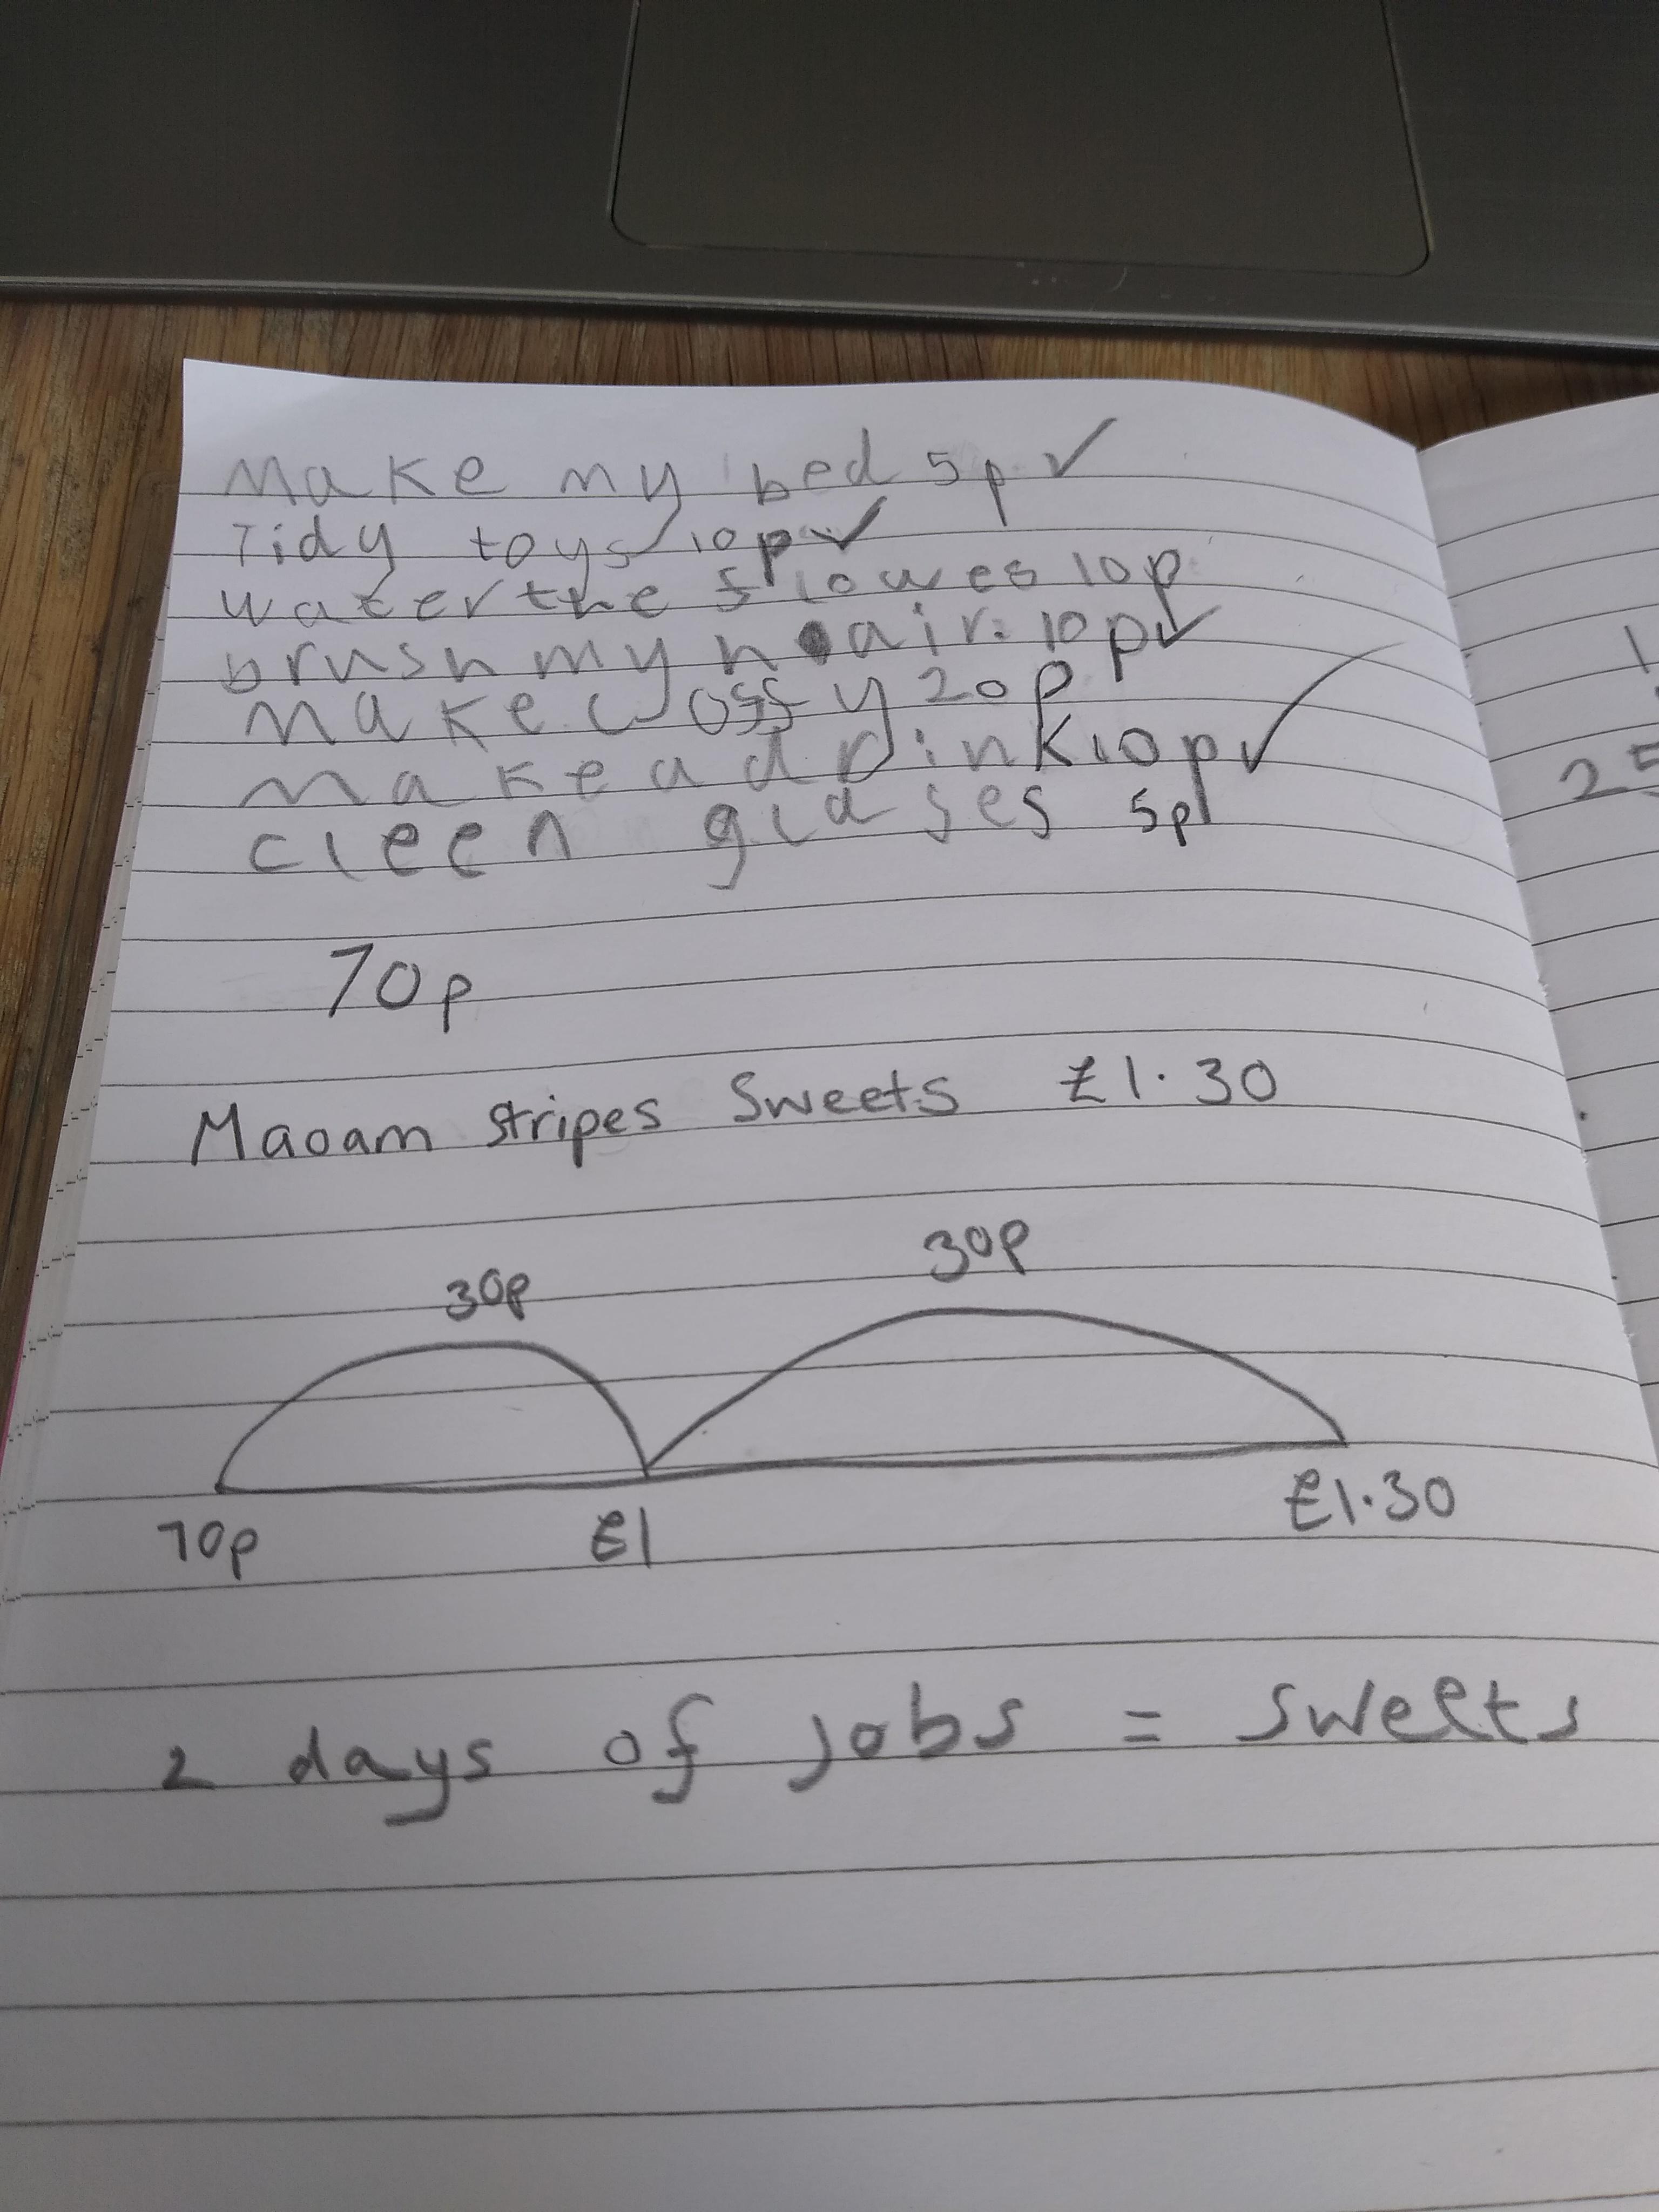 Make my bed 5p ✓
Tidy toys 10p ✓
water the flowes 10p
brush my hair. 10p ✓
make coffy 20p
make a drink 10p ✓
cleen glases 5p
70p
Maoam stripes sweets £1.30
30p 30p
70p £1 £1.30
2 days of jobs = sweets
1
25